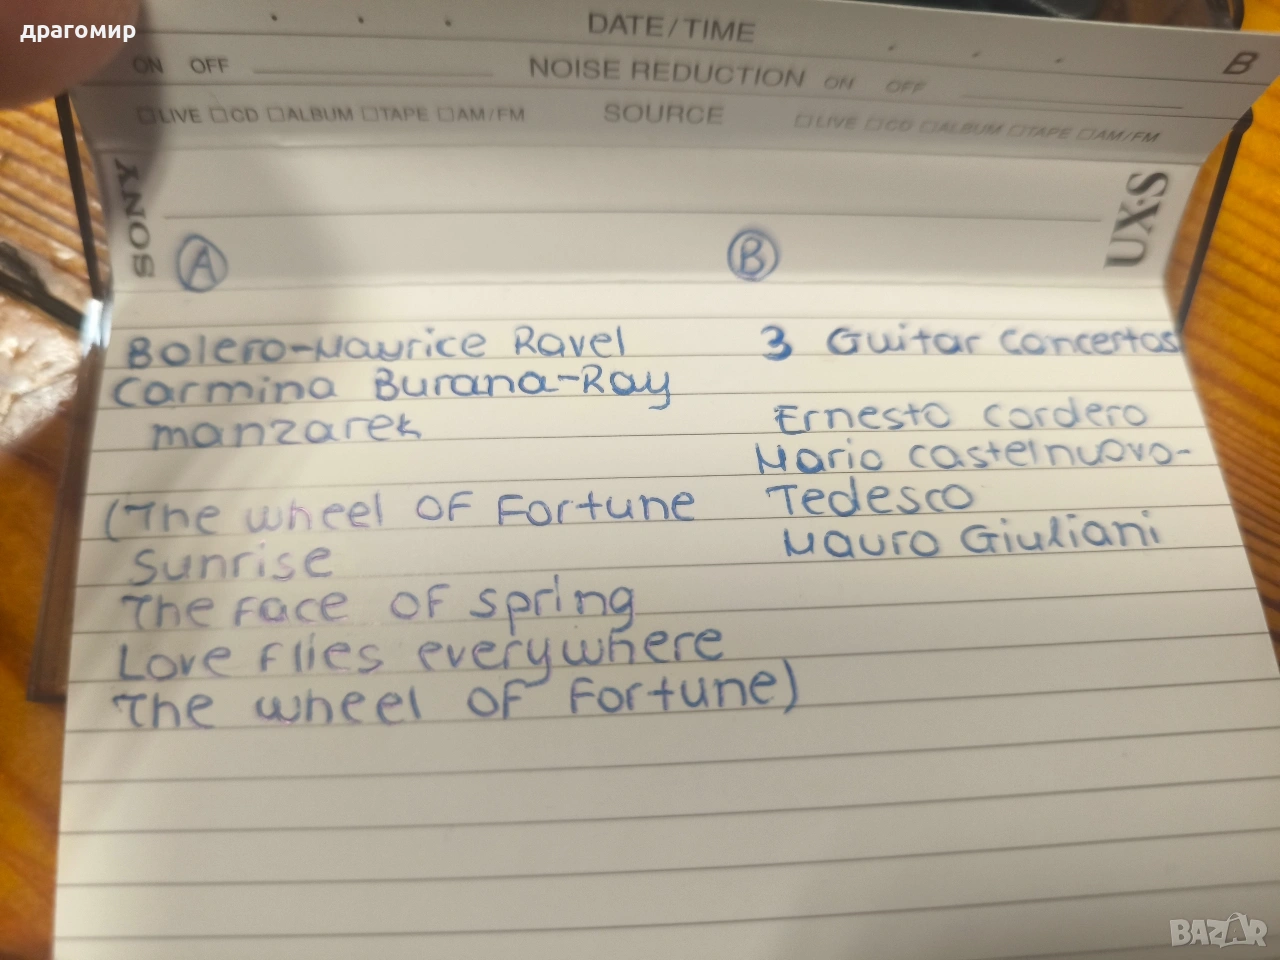 драгомир
DATE/TIME
B
ON OFF NOISE REDUCTION ON OFF
LIVE CD ALBUM TAPE AM/FM SOURCE LIVE CD ALBUM TAPE AM/FM
SONY
UX·S
A
B
Bolero-Maurice Ravel
Carmina Burana-Ray
manzarek
(The wheel OF Fortune
Sunrise
The Face OF spring
Love Flies everywhere
The wheel OF Fortune)
3 Guitar Concertos
Ernesto Cordero
Mario Castelnuovo-
Tedesco
Mauro Giuliani
BAZAR